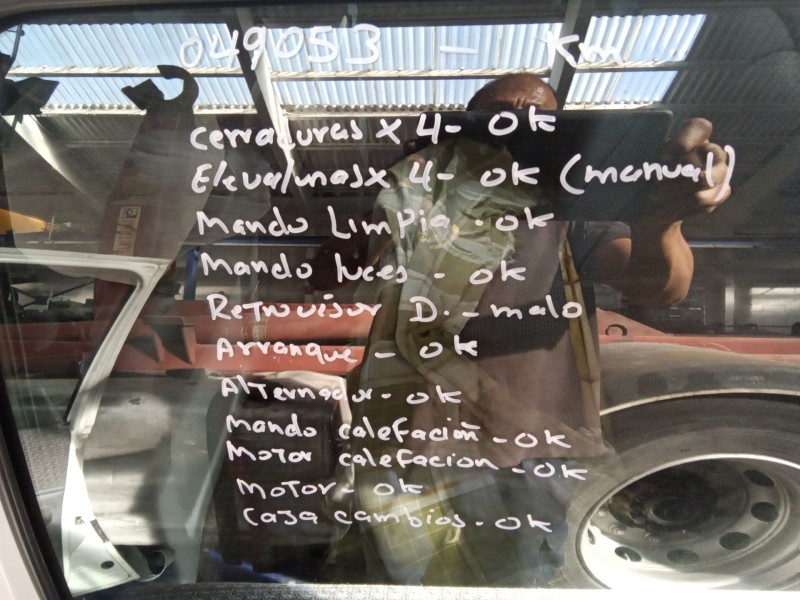 049053 - Km
cerraduras x 4- Ok
Elevalunas x 4- ok (manual)
Mando Limpia - ok
Mando luces - ok
Retrovisor D. - malo
Arranque - ok
Alternador - ok
Mando calefación - ok
Motor calefacion - ok
Motor - ok
Caja cambios - ok